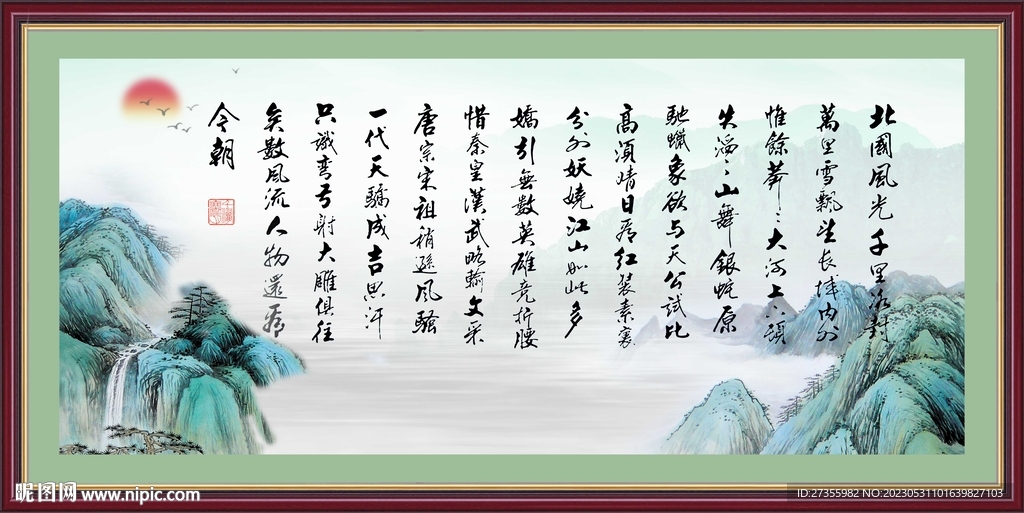 北國風光千里冰封
萬里雪飄望長城内外
惟餘莽〻大河上下頓
失滔〻山舞銀蛇原
馳蠟象欲与天公試比
高須晴日看紅装素裹
分外妖嬈江山如此多
嬌引無數英雄竞折腰
惜秦皇漢武略輸文采
唐宗宋祖稍遜風騷
一代天驕成吉思汗
只識弯弓射大雕俱往
矣数風流人物還看
今朝
昵图网 www.nipic.com
ID:27355982 NO:20230531101639827103